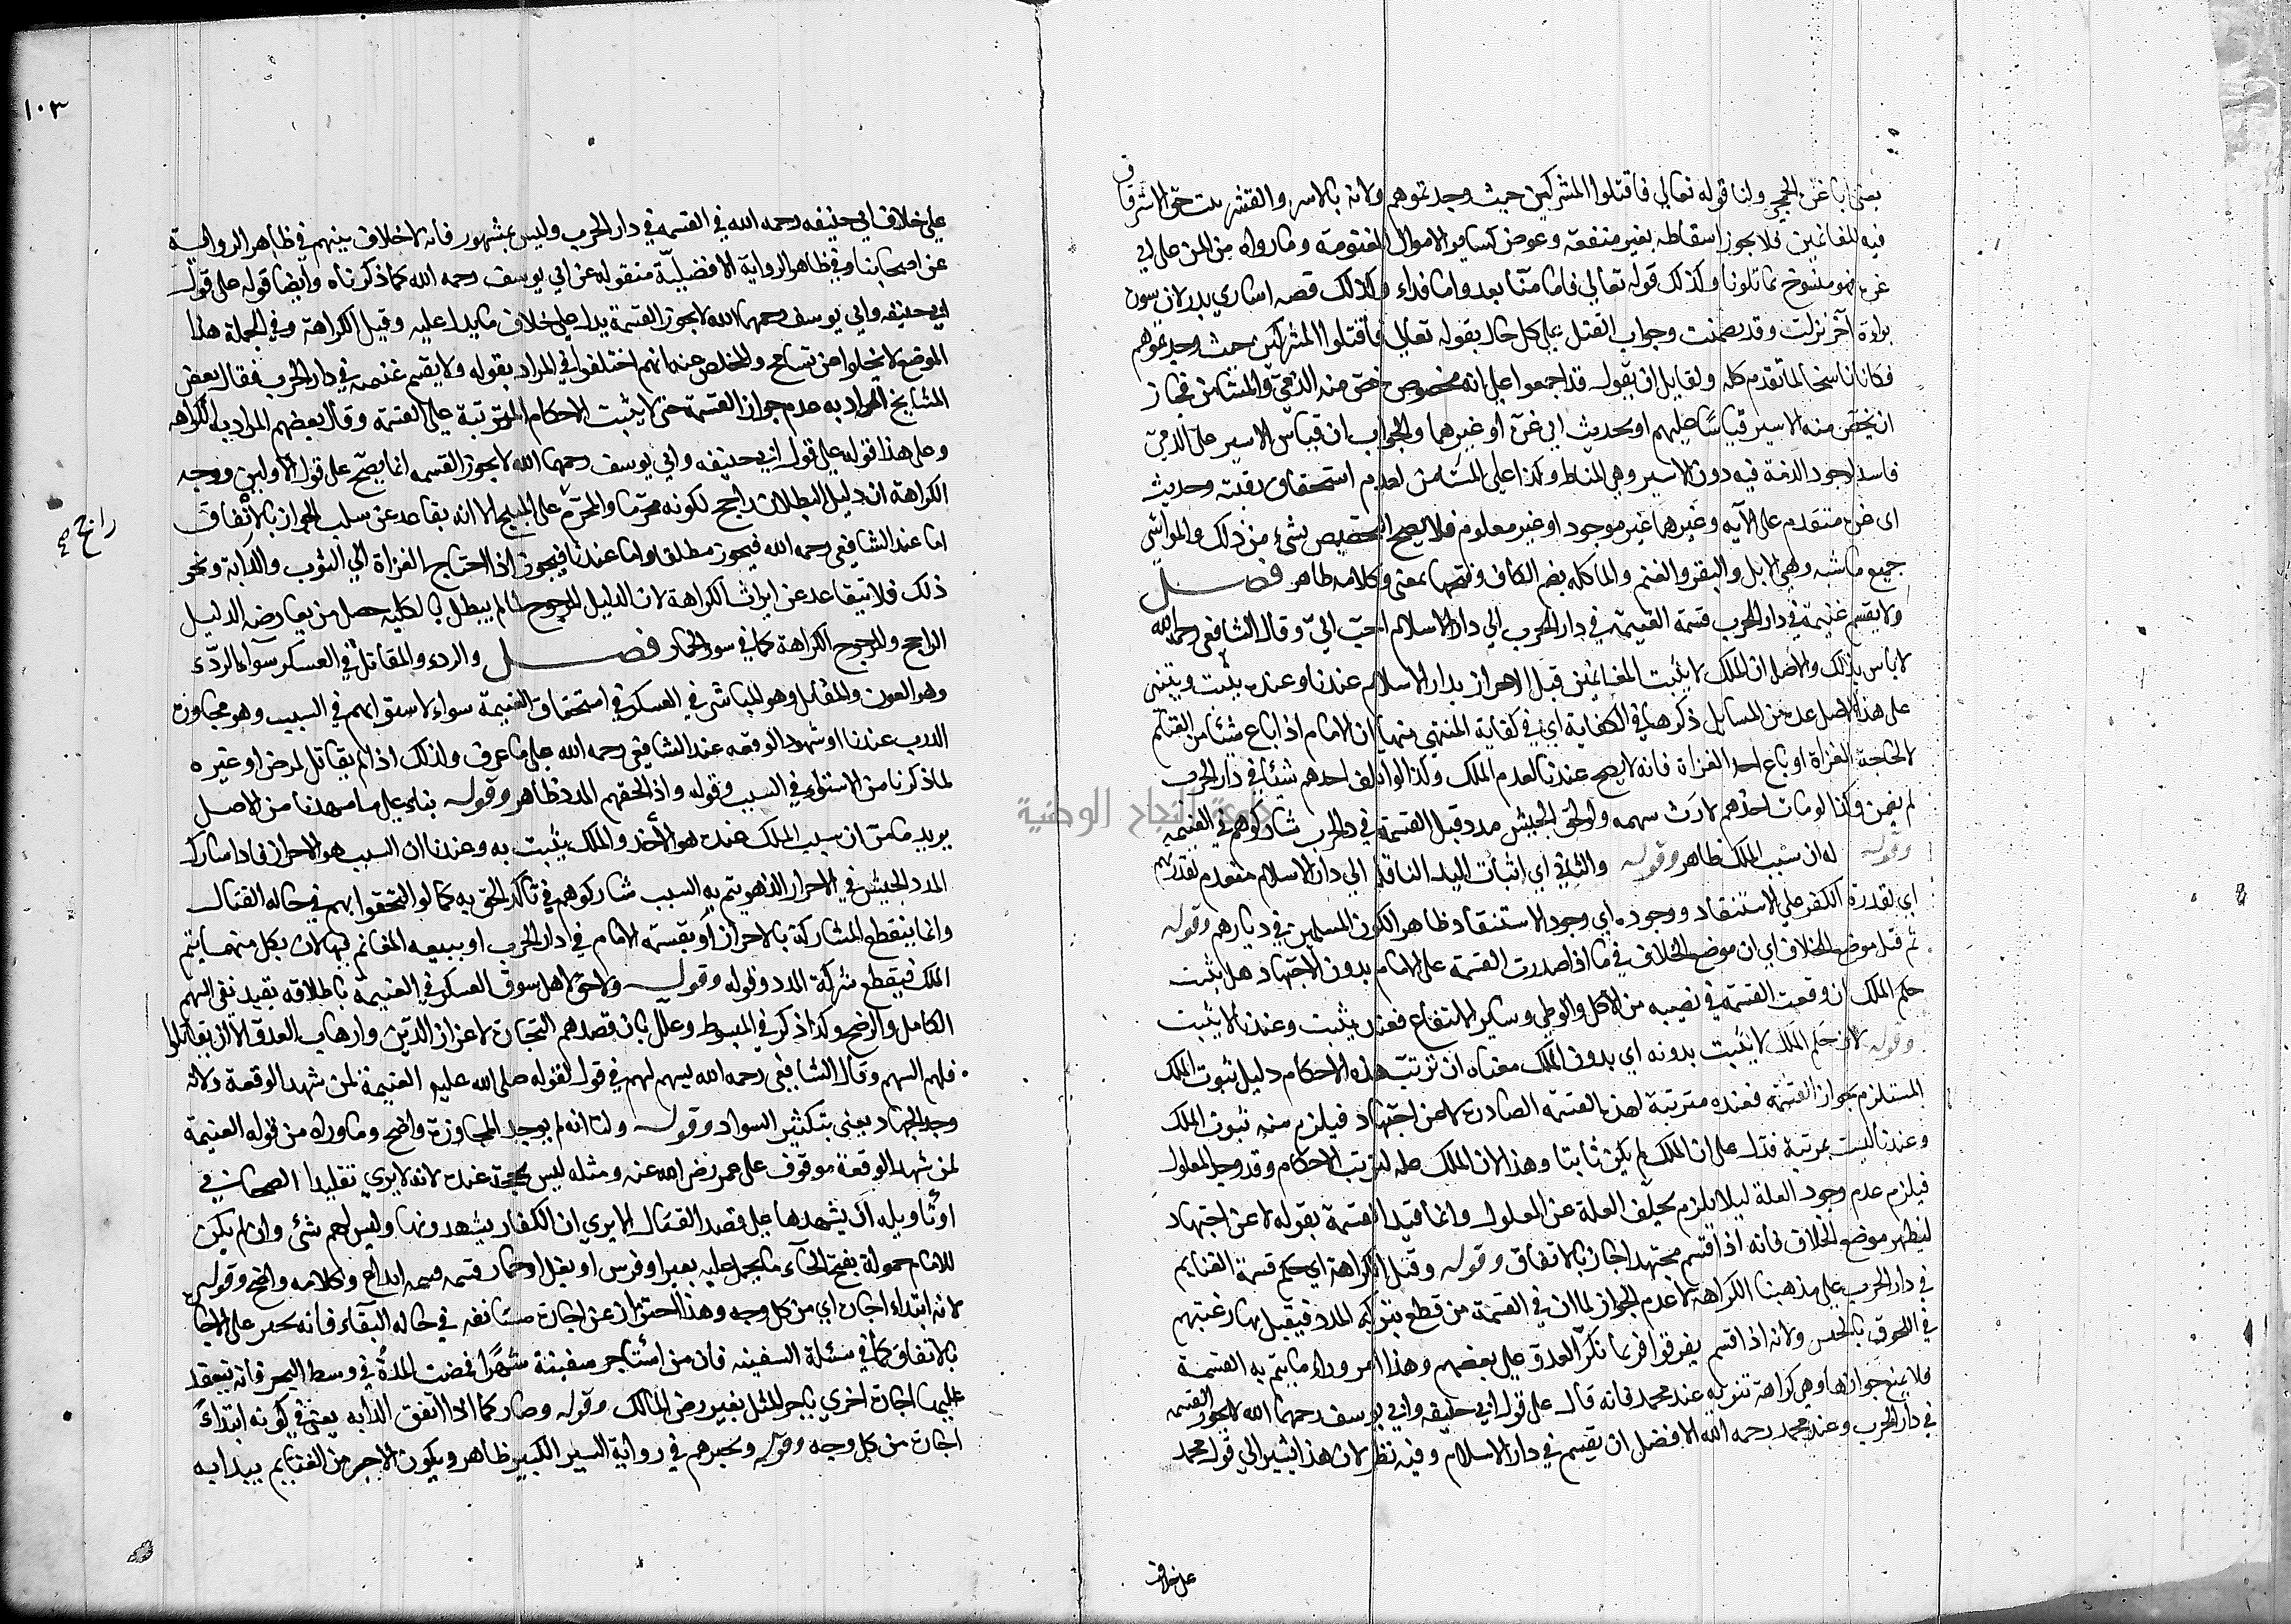 يعني ابا غرة الحجي ولنا قوله تعالي فاقتلوا المشركين حيث وجدتموهم ولانه بالاسر والقسر ثبت حق الاسترقاق
فيه للغانمين فلا يجوز اسقاطه بغير منفعة وعوض كساير الاموال المغنومة وما رواه من المن علي ابي
غرة فهو منسوخ بما تلونا وكذلك قوله تعالي فاما منا بعد واما فداء وكذلك قصه اساري بدر لان سورة
براءة آخر نزلت وقد تضمنت وجواب القتل علي كل حال بقوله تعالي فاقتلوا المشركين حيث وجدتموهم
فكان ناسخا لما تقدم كله ولقايل ان يقول قد اجمعوا علي انه مخصوص خص منه الذمي والمستامن فجاز
ان يخص منه الاسير قياسا عليهم او بحديث ابي غرة او غيرهما والجواب ان قياس الاسير علي الذمي
فاسد لوجود الذمة فيه دون الاسير وهي المناط وكذا علي المستامن لعدم استحقاق رقبته وحديث
ابي غرة متقدم علي الآيه وغيرهما غير موجود او غير معلوم فلا يصح التخصيص بشيء من ذلك والمواشي
جميع ماشيه وهي الابل والبقر والغنم والماكله بضم الكاف وفتحها بمعني وكلامه ظاهر فصل
ولا يقسم غنيمة في دار الحرب قسمة الغنيمة في دار الحرب الي دار الاسلام احب الي وقال الشافعي رحمه الله
لا باس بذلك والاصل ان الملك لا يثبت للغانمين قبل الاحراز بدار الاسلام عندنا وعنده يثبت ويبتني
علي هذا الاصل عدة من المسايل ذكرها في الكفاية اي في كفاية المنتهي منها ان الامام اذا باع شيئا من الغنايم
لا لحاجة الغزاة او باع احد الغزاة فانه لا يصح عندنا لعدم الملك وكذا لو اتلف احدهم شيئا في دار الحرب
لم يضمن وكذا لو مات احدهم لا يورث سهمه ولو لحق الجيش مدد قبل القسمة في دار الحرب شاركوهم في الغنيمه
وقوله له ان سبب الملك ظاهر وقوله والثاني اي اثبات اليد الناقلة الي دار الاسلام منعدم لقدرتهم
اي لقدرة الكفر علي الاستنقاذ ووجوده اي وجود الاستنقاذ ظاهر الكون المسلمين في ديارهم وقوله
ثم قيل موضع الخلاف اي ان موضع الخلاف في ما اذا صدرت القسمة علي الامام بدون الاجتهاد هل يثبت
حكم الملك ان وقعت القسمة في نصيبه من الاكل والوطي وساير الانتفاع فعنده يثبت وعندنا لا يثبت
وقوله لان حكم الملك لا يثبت بدونه اي بدون الملك معناه ان ترتب هذه الاحكام دليل ثبوت الملك
المستلزم بجواز القسمة فعنده مترتبة لهذه القسمة الصادرة لا عن اجتهاد فيلزم منه ثبوت الملك
وعندنا ليست بمرتبة فدل علي ان الملك لم يكن ثابتا وهذا لان الملك علة لترتب الاحكام وقد وجد المعلول
فيلزم عدم وجود العلة ليلا يلزم تخلف العلة عن المعلول وانما قيد القسمة بقوله لا عن اجتهاد
ليظهر موضع الخلاف فانه اذا قسم مجتهدا جاز بالاتفاق وقوله وقيل الكراهة اي حكم قسمة الغنايم
في دار الحرب علي مذهبنا الكراهة لا عدم الجواز لما ان في القسمة من قطع شركة المدد فيقبل بها رغبتهم
في اللحوق بالجيش ولانه اذا قسم يفرقوا فربما نكر العدو علي بعضهم وهذا امر وراء ما يتم به القسمة
فلا يمنع جوازها وهي كراهة تنزيه عند محمد فانه قال علي قول ابي حنيفه وابي يوسف رحمهما الله لا يجوز القسمه
في دار الحرب وعند محمد رحمه الله الافضل ان يقسم في دار الاسلام وفيه نظر لان هذا يشير الي قول محمد
علي خلاف
١٠٣
علي خلاف ابي حنيفه رحمه الله في القسمة في دار الحرب وليس بمشهور فانه لا خلاف بينهم في ظاهر الرواية
عن اصحابنا وفي ظاهر الرواية الافضلية منقوله عن ابي يوسف رحمه الله كما ذكرناه وايضا قوله علي قول
ابي حنيفه وابي يوسف رحمهما الله لا يجوز القسمة يدل علي خلاف ما يدل عليه وقيل الكراهة وفي الجملة هذا
الموضع لا يخلوا من تسامح والمخلص عنه انهم اختلفوا في المراد بقوله ولا يقسم غنيمه في دار الحرب فقال بعض
المشايخ المراد به عدم جواز القسمة حتي لا يثبت الاحكام المترتبة علي القسمة وقال بعضهم المراد به الكراهه
وعلي هذا قوله علي قول ابي حنيفه وابي يوسف رحمهما الله لا يجوز القسمه انما يصح علي قول الاولين ووجه
الكراهة ان دليل البطلان راجح لكونه محرما والمحرم علي المبيح الا انه تقاعد عن سلب الجواز بالاتفاق
راجح صح
اما عند الشافعي رحمه الله فيجوز مطلقا واما عندنا فيجوز اذا احتاج الغزاة الي الثوب والدابة ونحو
ذلك فلا تتقاعد عن ايراث الكراهة لان الدليل المرجوح لما لم يبطل بالكليه حصل من تعارض الدليل
الراجح والمرجوح الكراهة كما في سور الحمار فصل والردء والمقاتل في العسكر سواء الردء
وهو العون والمقاتل وهو المباشر في العسكر في استحقاق الغنيمة سواء لاستوائهم في السبب وهو مجاوزة
الدرب عندنا او شهود الوقعه عند الشافعي رحمه الله علي ما عرف ولذلك اذا لم يقاتل لمرض او غيره
لما ذكرنا من الاستواء في السبب وقوله واذا لحقهم المدد ظاهر وقوله بناء علي ما مهدنا من الاصل
يريد ما من ان سبب الملك عنده هو الاخذ والملك يثبت به وعندنا ان السبب هو الاحراز فاذا شارك
المدد الجيش في الاحراز الذي هو يتم به السبب شاركوهم في تاكد الحق به كما لو التحقوا بهم في حاله القتال
وانما ينقطع المشاركة بالاحراز او بقسمة الامام في دار الحرب او ببيعه المغانم فيها لان بكل منهما يتم
الملك فيقطع شركة المدد وقوله وقوله ولا حق لاهل سوق العسكر في الغنيمة باطلاقه يفيد نفي السهم
الكامل والرضخ وكذا ذكر في المبسوط وعلل بان قصدهم التجارة لا اعزاز الدين وارهاب العدو الا ان يقاتلوا
فلهم السهم وقال الشافعي رحمه الله يسهم لهم في قول لقوله صلي الله عليه الغنيمة لمن شهد الوقعة ولانه
وجد الجهاد يعني بتكثير السواد وقوله ولنا انه لم يوجد المجاوزة واضح وما رواه من قوله الغنيمة
لمن شهد الوقعة موقوف علي عمر رضي الله عنه ومثله ليس بحجة عنده لانه لا يري تقليد الصحابي
او تأويله ان يشهدها علي قصد القتال الا يري ان الكفار يشهدونها وليس لهم شئ وان لم يكن
للامام حمولة بفتح الحاء ما يحمل عليه بعير او فرس او بغل او حمار قسمه قسمه ايداع وكلامه واضح وقوله
لانه ابتداء اجارة اي من كل وجه وهذا احتراز عن اجارة مستانفه في حاله البقاء فانه يجبر علي الاجا
بالاتفاق كما في مسئلة السفينه فان من استاجر سفينة شهرا فمضت المدة في وسط البحر فانه ينعقد
عليها اجارة اخري باجر المثل بغير رضي المالك وقوله وصار كما اذا اتفق الدابه يعني في كونه ابتداء
اجارة من كل وجه وقوله ويجبرهم في رواية السير الكبير ظاهر ويكون الاجر من الغنايم يبدا به